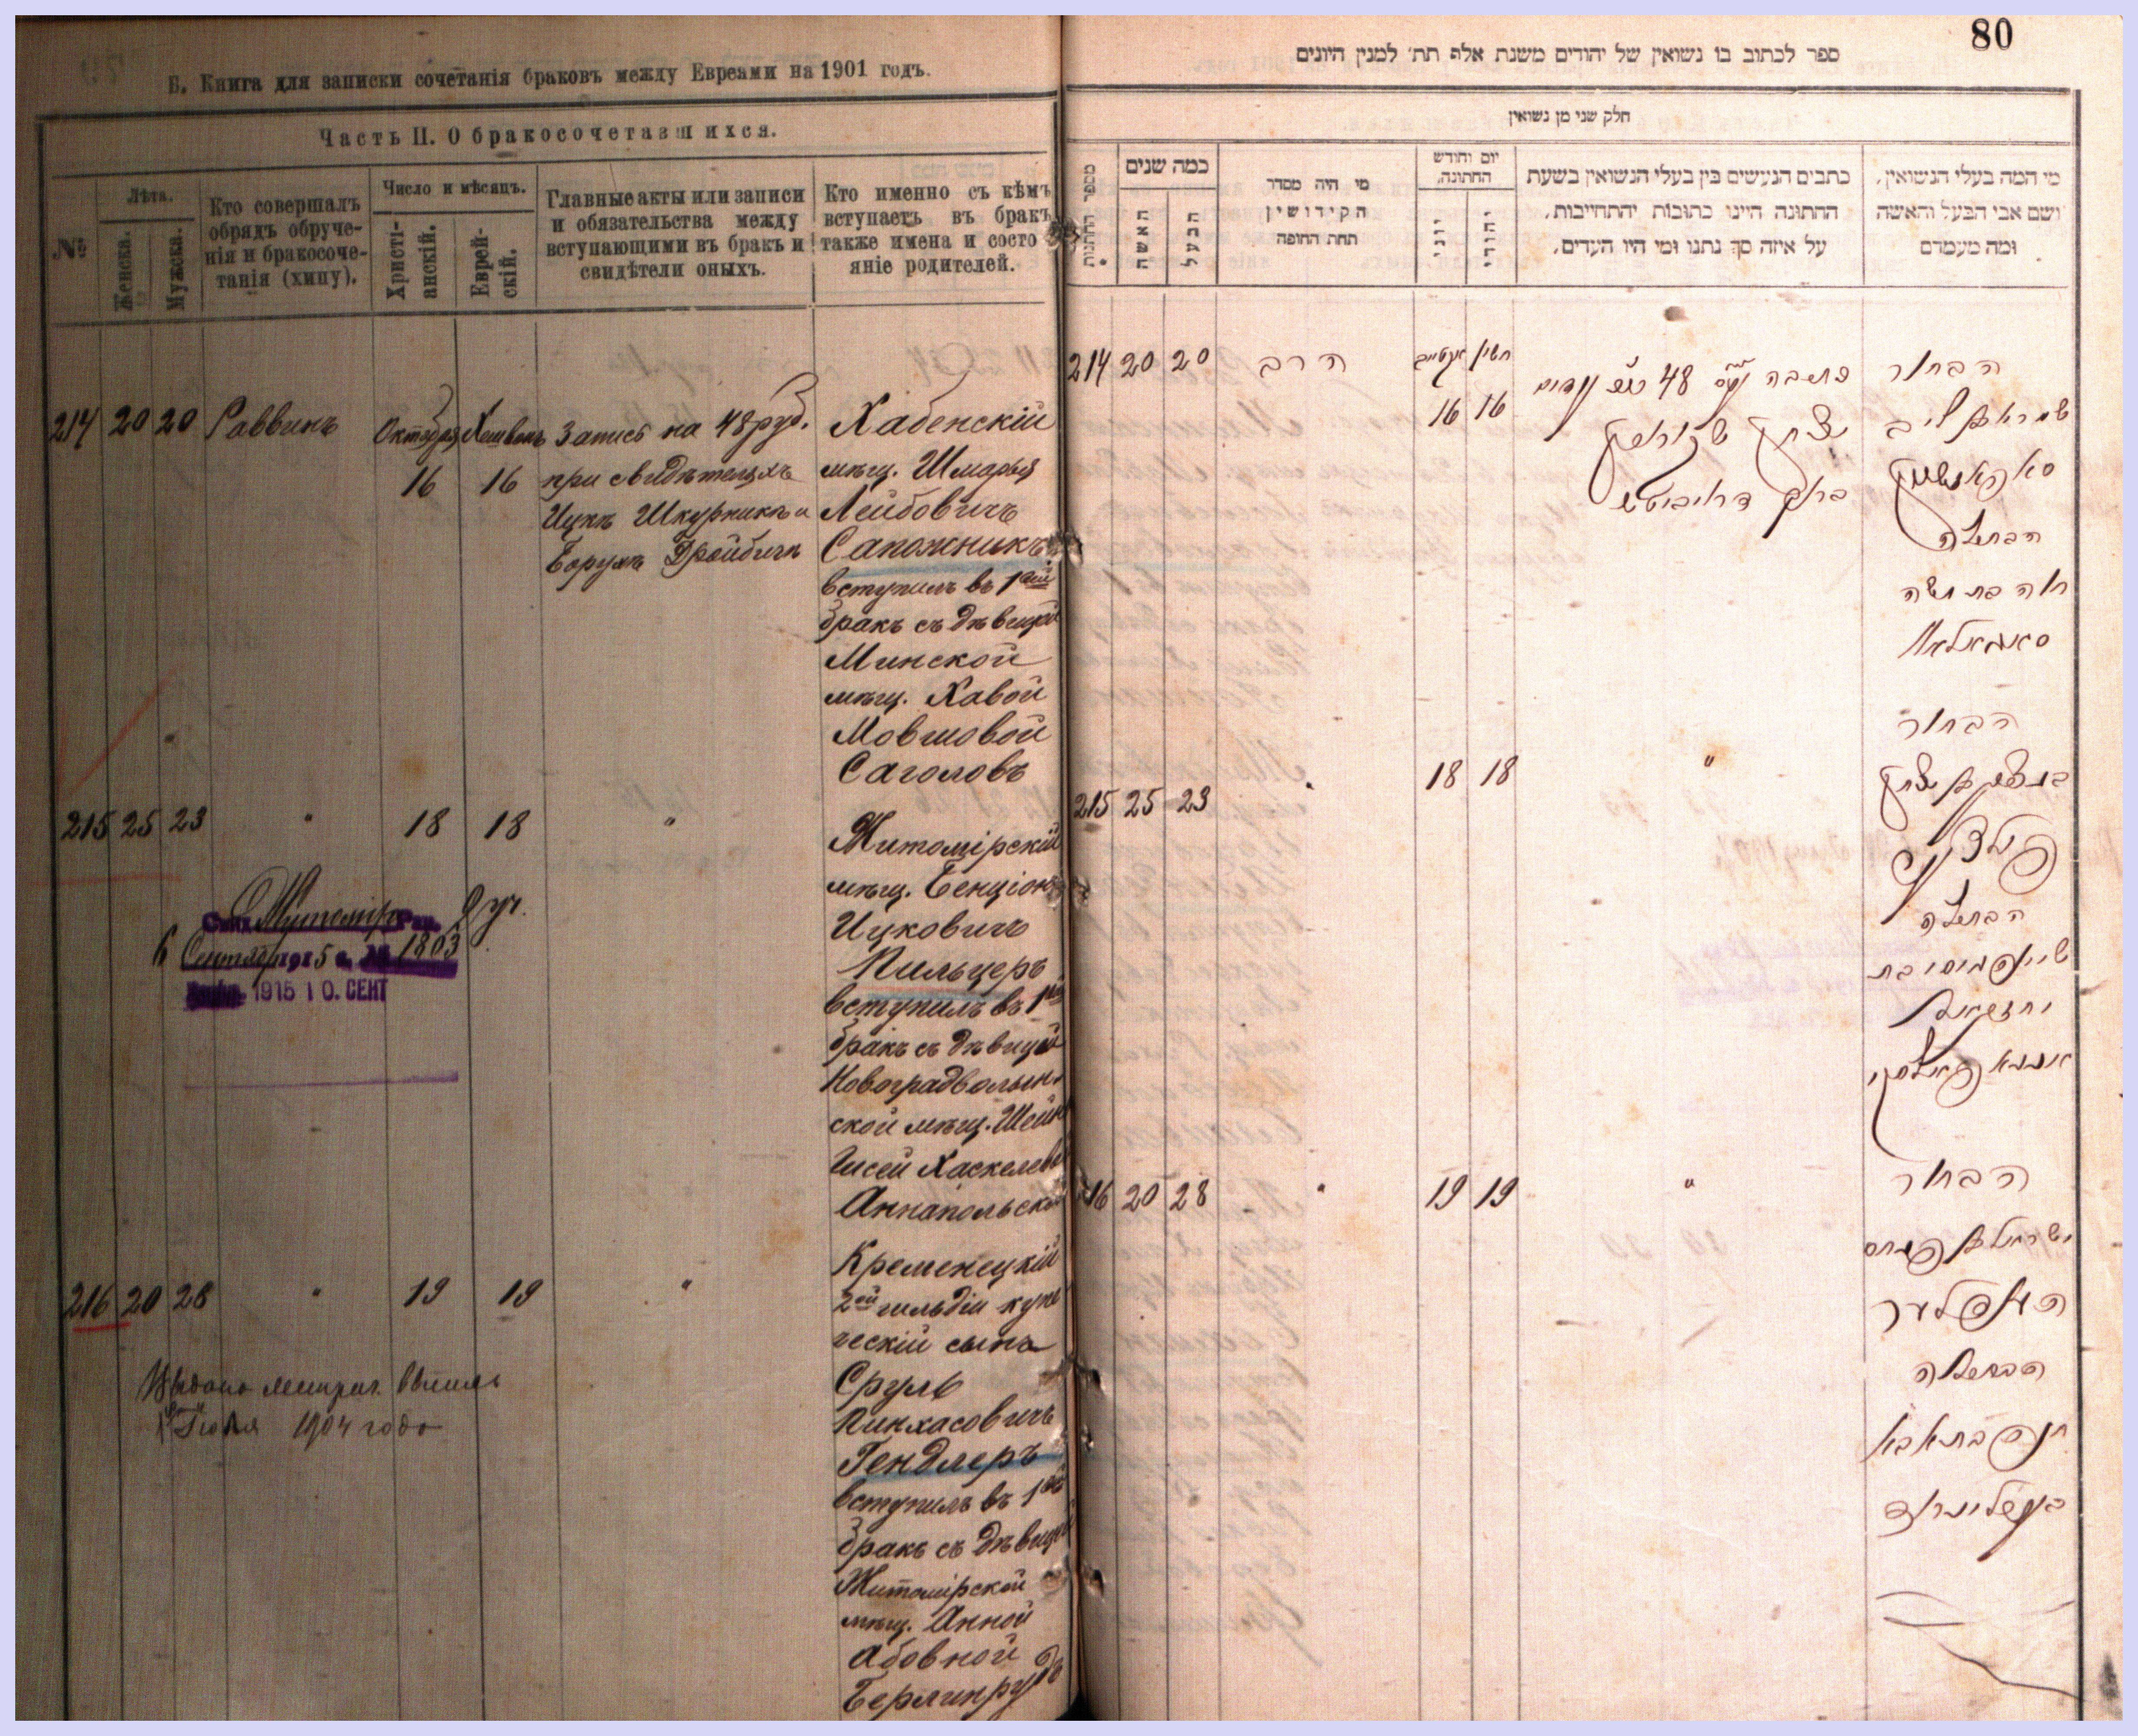 80
Б. Книга для записки сочетанія браковъ между Евреями на 1901 годъ.
Часть II. О бракосочетавшихся.
№
Лѣта.
Женска.
Мужска.
Кто совершалъ
обрядъ обруче-
нія и бракосоче-
танія (хипу).
Число и мѣсяцъ.
Христі-
анскій.
Еврей-
скій.
Главные акты или записи
и обязательства между
вступающими въ бракъ и
свидѣтели оныхъ.
Кто именно съ кѣмъ
вступаетъ въ бракъ
также имена и состо
яніе родителей.
214 20 20 Раввинъ Октября Хешвонъ
16 16
Запись на 48 руб.
при свидѣтеляхъ
Ицкъ Шкурникъ и
Борухъ Дройбичъ
Хабенскій
мѣщ. Шмарья
Лейбовичъ
Сапожникъ
вступилъ въ 1ый
бракъ съ дѣвицей
Минской
мѣщ. Хавой
Мовшовой
Саголовъ
215 25 23 " 18 18 "
Житомірскій
мѣщ. Бенціонъ
Ицковичъ
Пильцеръ
вступилъ въ 1ый
бракъ съ дѣвицей
Новоградволын-
ской мѣщ. Шейн
Гисей Хаскелев
Аннапольской
2 уч.
6 Сентября 1915 г. № 1803
1915 10. СЕНТ
216 20 28 " 19 19 "
Кременецкій
2ой гильдіи купе
ческій сынъ
Сруль
Пинхасовичъ
Гендлеръ
вступилъ въ 1ый
бракъ съ дѣвицей
Житомірской
мѣщ. Анной
Абовной
Берлинрудъ
Выдана метрич. выпись
Іюля 1904 года
ספר לכתוב בו נשואין של יהודים משנת אלף תת׳ למנין היונים
חלק שני מן נשואין
מספר החתונות
כמה שנים
האשה
הבעל
מי היה מסדר
הקידושין
תחת החופה
יום וחודש
החתונה.
יוני
יהודי
כתבים הנעשים בין בעלי הנשואין בשעת
החתונה היינו כתובות יהתחייבות,
על איזה סך נתנו ומי היו העדים.
מי המה בעלי הנשואין,
ושם אבי הבעל והאשה
ומה מעמדם
214 20 20 הרב אקטייב חשון
16 16
יצחק שקורניק
ברוך דראיביטש
הבחור
שמריא בן ליב
סאפאזשניק
הבתולה
חוה בת משה
סאגאלאוו
215 25 23 " 18 18 "
הבחור
בנציון בן יצחק
פילצער
הבתולה
יחזקאל
אננאפאלסקי
216 20 28 " 19 19 "
הבחור
ישראל בן פנחס
הענדלער
הבתולה
חנה בת אבא
בערלינרוד